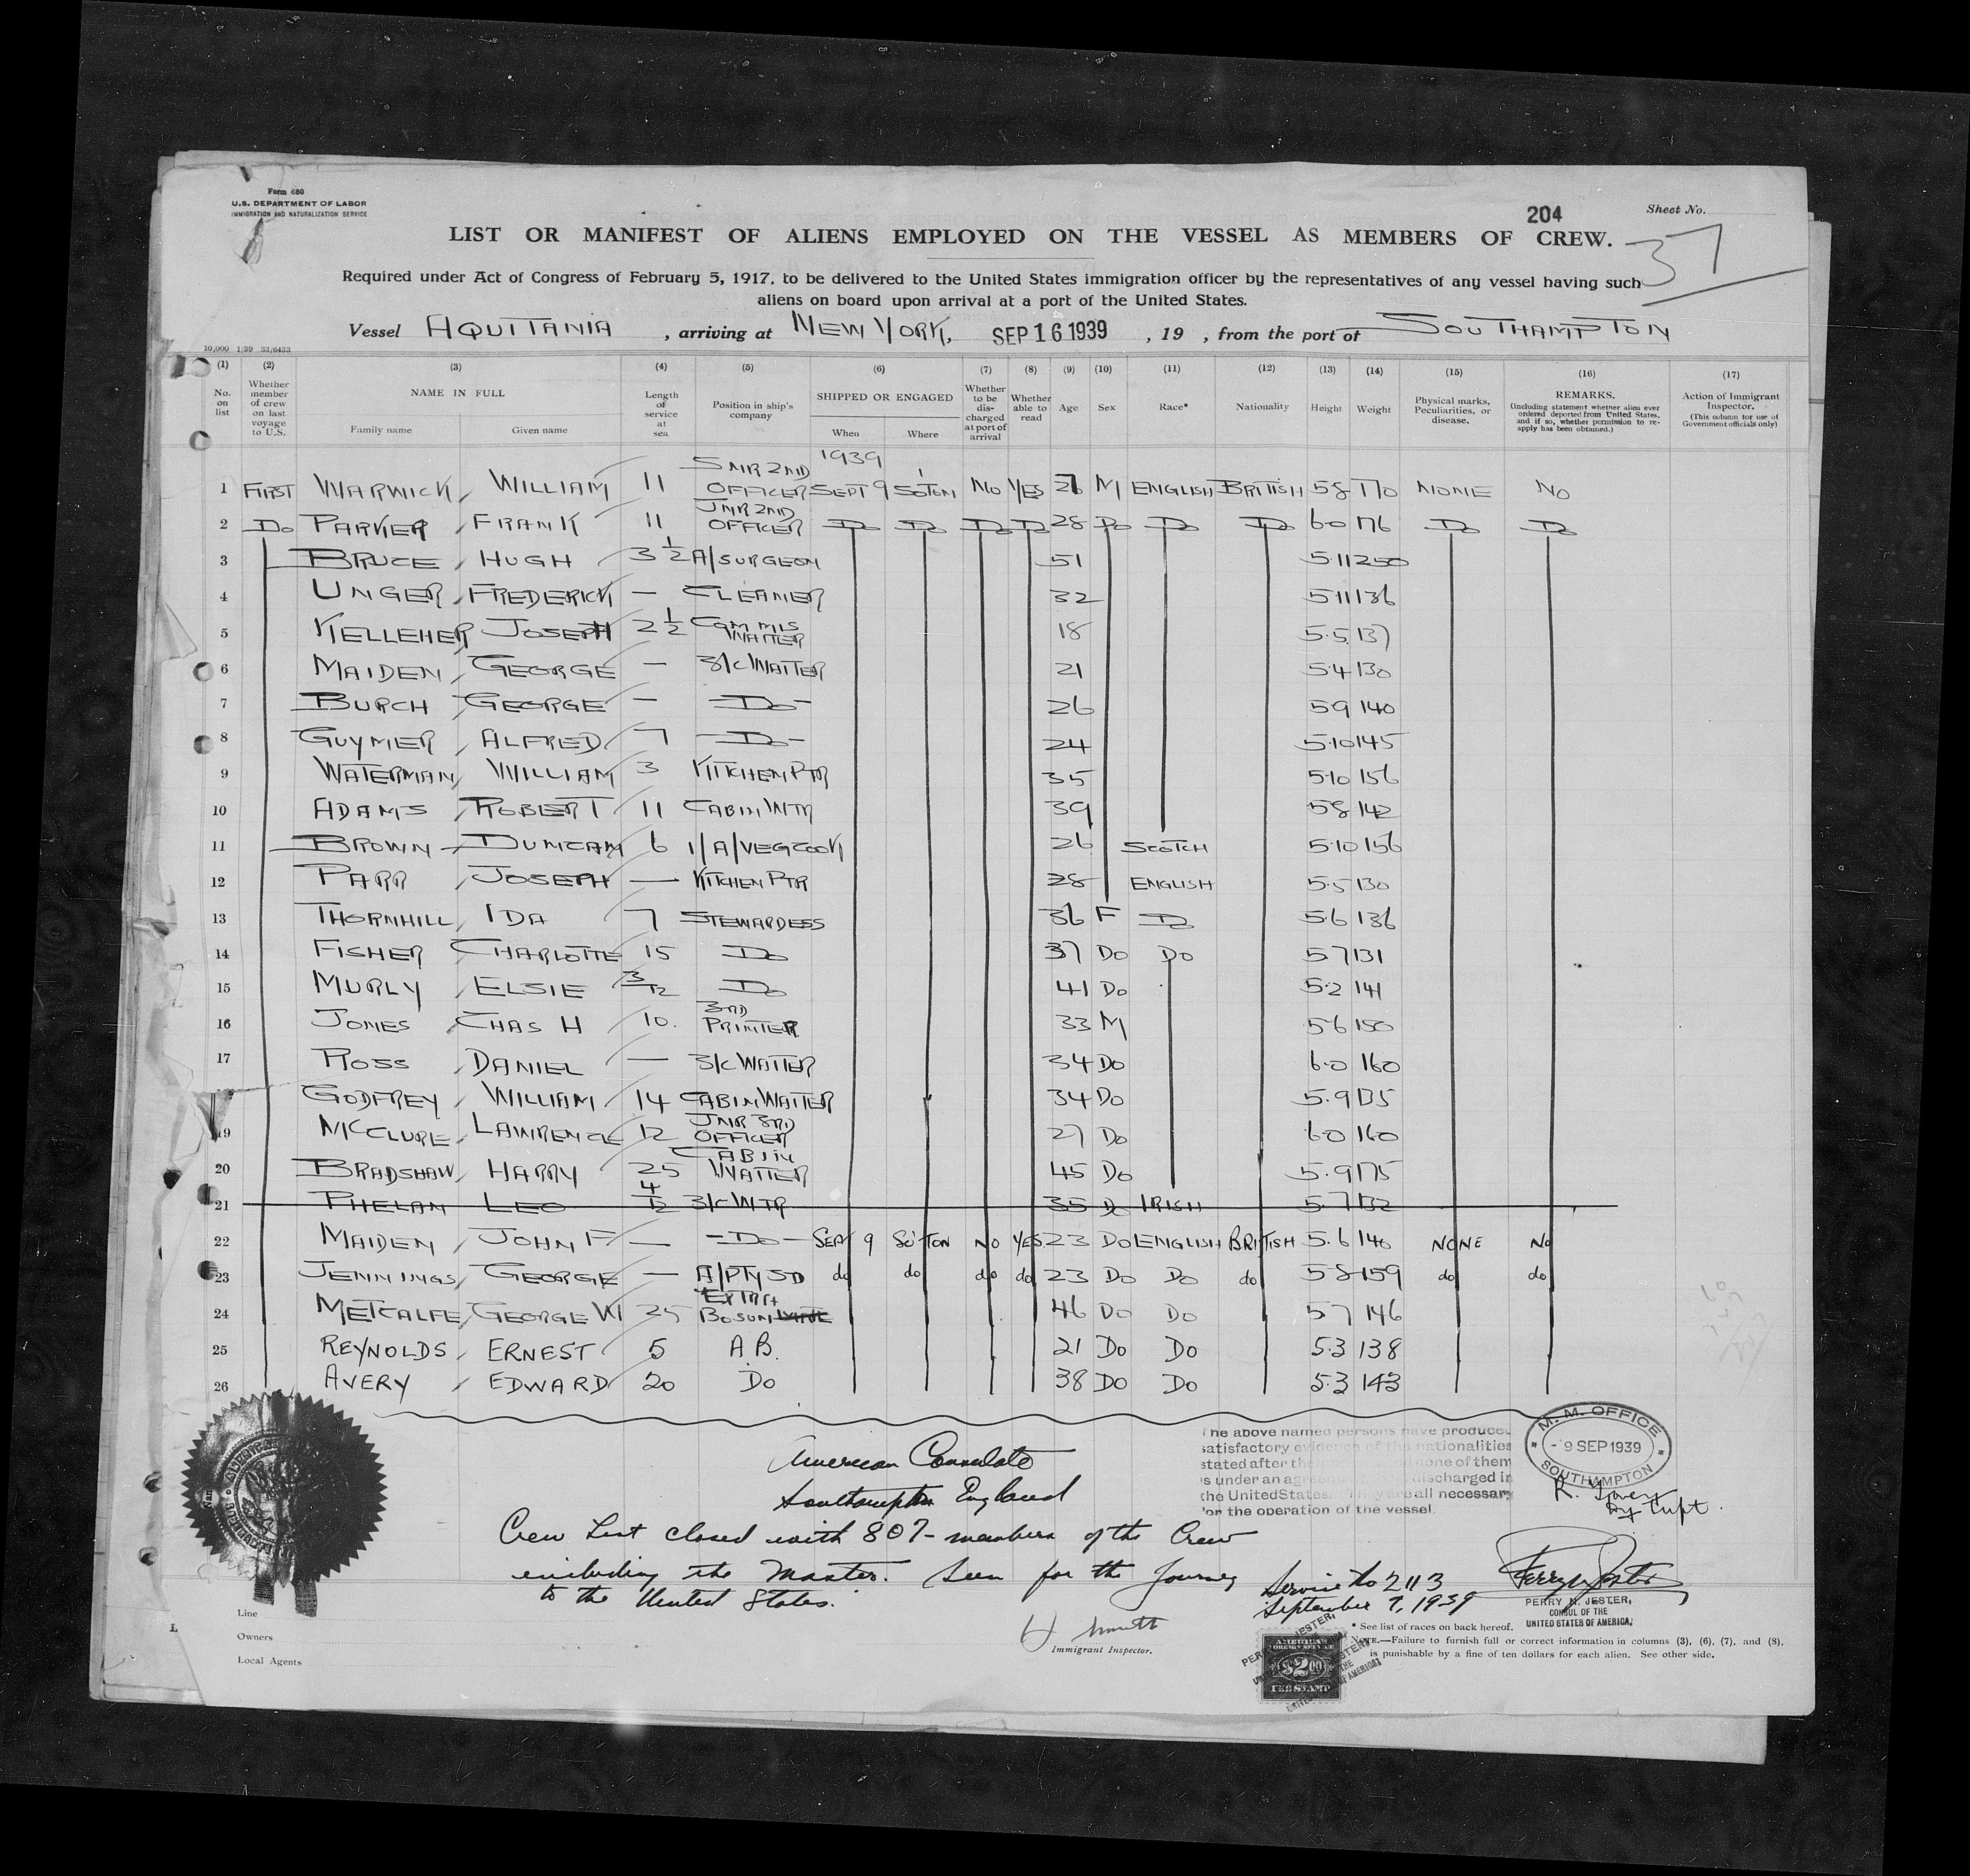 Form 680
U.S. DEPARTMENT OF LABOR
IMMIGRATION AND NATURALIZATION SERVICE
204
Sheet No.
37
LIST OR MANIFEST OF ALIENS EMPLOYED ON THE VESSEL AS MEMBERS OF CREW.
Required under Act of Congress of February 5, 1917, to be delivered to the United States immigration officer by the representatives of any vessel having such
aliens on board upon arrival at a port of the United States.
Vessel AQUITANIA , arriving at NEW YORK, SEP 16 1939 , 19 , from the port of SOUTHAMPTON
10,000 1/39 33,6433
(1) (2) (3) (4) (5) (6) (7) (8) (9) (10) (11) (12) (13) (14) (15) (16) (17)
No. on list
Whether member of crew on last voyage to U.S.
NAME IN FULL
Family name Given name
Length of service at sea
Position in ship's company
SHIPPED OR ENGAGED
When Where
Whether to be discharged at port of arrival
Whether able to read
Age
Sex
Race*
Nationality
Height
Weight
Physical marks, Peculiarities, or disease.
REMARKS.
(Including statement whether alien ever ordered deported from United States, and if so, whether permission to re-apply has been obtained.)
Action of Immigrant Inspector.
(This column for use of Government officials only)
1939
1 FIRST WARWICK, WILLIAM 11 SNR 2ND OFFICER SEPT 9 SOTON NO YES M ENGLISH BRITISH 58 170 NONE NO
2 DO PARKER, FRANK 11 JNR 2ND OFFICER DO DO DO DO 28 DO DO DO 6-0 176 DO DO
3 BRUCE, HUGH 3 1/2 A/SURGEON 51 5.11 250
4 UNGER, FREDERICK — CLEANER 32 5.11 136
5 KELLEHER JOSEPH 2 1/2 COMMIS WAITER 18 5.5 137
6 MAIDEN, GEORGE — 3/C WAITER 21 5.4 130
7 BURCH, GEORGE — -DO- 26 59 140
8 GUYMER, ALFRED 7 -DO- 24 5.10 145
9 WATERMAN, WILLIAM 3 KITCHEN PTR 35 5.10 156
10 ADAMS, ROBERT 11 CABIN WTR 39 58 142
11 BROWN DUNCAN 6 1/A/VEG COOK 26 SCOTCH 5.10 156
12 PARR, JOSEPH — KITCHEN PTR 28 ENGLISH 5.5 130
13 THORNHILL, IDA 7 STEWARDESS 36 F DO 5.6 136
14 FISHER CHARLOTTE 15 DO 37 DO DO 5 7 131
15 MURLY, ELSIE 3/12 DO 41 DO 5.2 141
16 JONES, CHAS H 10. 3RD PRINTER 33 M 5.6 150
17 ROSS, DANIEL — 3/C WAITER 34 DO 6.0 160
GODFREY, WILLIAM 14 CABIN WAITER 34 DO 5.9 135
19 MCCLURE, LAWRENCE 12 JNR 3RD OFFICER 27 DO 6.0 160
20 BRADSHAW, HARRY 25 CABIN WAITER 45 DO 5.9 175
21 PHELAN LEO 4/12 3/C WTR 35 D IRISH 5.7 132
22 MAIDEN, JOHN F — -DO- SEP 9 SO'TON NO YES 23 DO ENGLISH BRITISH 5.6 140 NONE NO
23 JENNINGS, GEORGE — A/PTY SD do do do do 23 DO DO do 5 8 159 do do
24 METCALFE, GEORGE W 25 EXTRA BOSUN 46 DO DO 5 7 146
25 REYNOLDS, ERNEST 5 A.B. 21 DO DO 5.3 138
26 AVERY, EDWARD 20 DO 38 DO DO 5.3 143
American Consulate
Southampton England
Crew List closed with 807- members of the Crew
including the Master. Seen for the Journey
to the United States.
Service No 2113
September 9, 1939
The above named persons have produced
satisfactory evidence of the nationalities
stated after their none of them
is under an agreement discharged in
the United States. They are all necessary
for the operation of the vessel.
M. M. OFFICE
- 9 SEP 1939
SOUTHAMPTON
PERRY N. JESTER,
CONSUL OF THE
UNITED STATES OF AMERICA.
Line
Owners
Local Agents
Immigrant Inspector.
* See list of races on back hereof.
NOTE.—Failure to furnish full or correct information in columns (3), (6), (7), and (8),
is punishable by a fine of ten dollars for each alien. See other side.
AMERICAN
FOREIGN SERVICE
$2.00
FEE STAMP